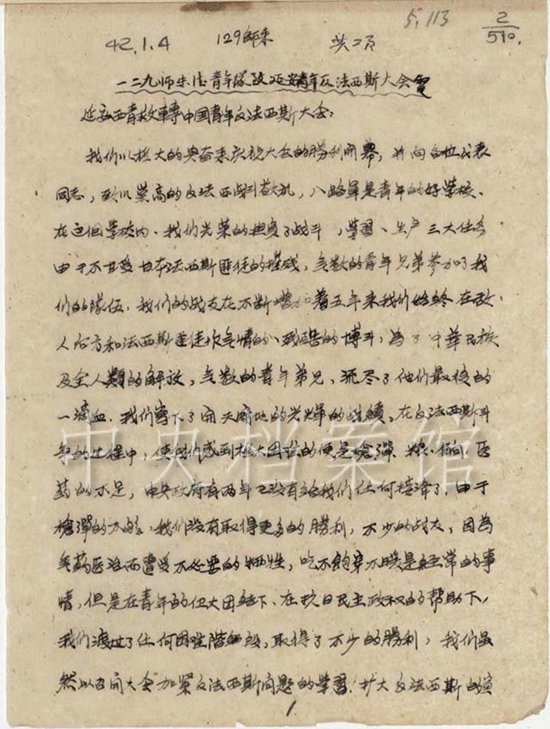 5.113
2
510.
42.1.4 129師来 共二項
一二九师朱德青年隊致延安青年反法西斯大会電
延安西青救轉中国青年反法西斯大会:
我们以極大的兴奋来庆祝大会的勝利開幕,并向各位代表
同志,致以崇高的反法西战斗敬礼,八路軍是青年的好学校、
在这個学校内、我们光荣的担负了战斗,学習、生产三大任务
由于不甘受日本法西斯匪徒的摧残,無数的青年兄弟参加了我
们的隊伍,我们的战友在不断增加着五年来我们始終在敌
人后方和法西斯匪徒作無情的、残酷的博斗,為了中華民族
及全人類的解放,無数的青年弟兄、流尽了他们最後的
一滴血,我们寫了開天闢地的光輝的成績。在反法西斯斗
争的过程中,使我们感到极大困難的便是槍彈、粮、餉、医
药的不足,中央政府有两年已没有给我们任何接济了,由于
槍彈的不够,我们没有取得更多的勝利,不少的战友,因為
無药医治而遭受不必要的牺牲,吃不飽穿不暖是経常的事
情,但是在青年的伟大团结下、在抗日民主政权的帮助下,
我们渡过了任何困难階段,取得了不少的勝利,我们虽
然以召開大会加緊反法西斯問題的学習,扩大反法西斯的宣
1
中央档案馆